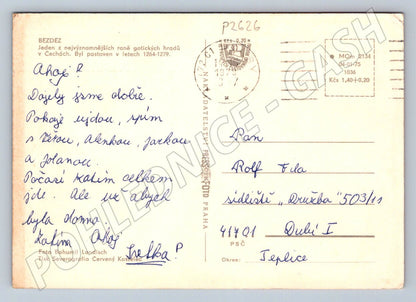 P2626
BEZDĚZ
Jeden z nejvýznamnějších raně gotických hradů
v Čechách. Byl postaven v letech 1264-1279.
Ahoj!
Dojely jsme dobře.
Pokoje ujdou, spím
s Věrou, Alenkou, Jarkou
a Jolanou.
Počasí zatím celkem
jde. Ale už abych
byla doma.
Zatím Ahoj
Foto Bohumil Landisch
Tisk Severografia Červený Kostelec
NAKLADATELSTVÍ PRESSFOTO PRAHA
MOP 0134
1036
Kčs 1,40+0,20
Pan
Rolf
sídliště "Družba" 503/11
41701 Dubí I
PSČ
Okres: Teplice
POHLEDNICE - GASH